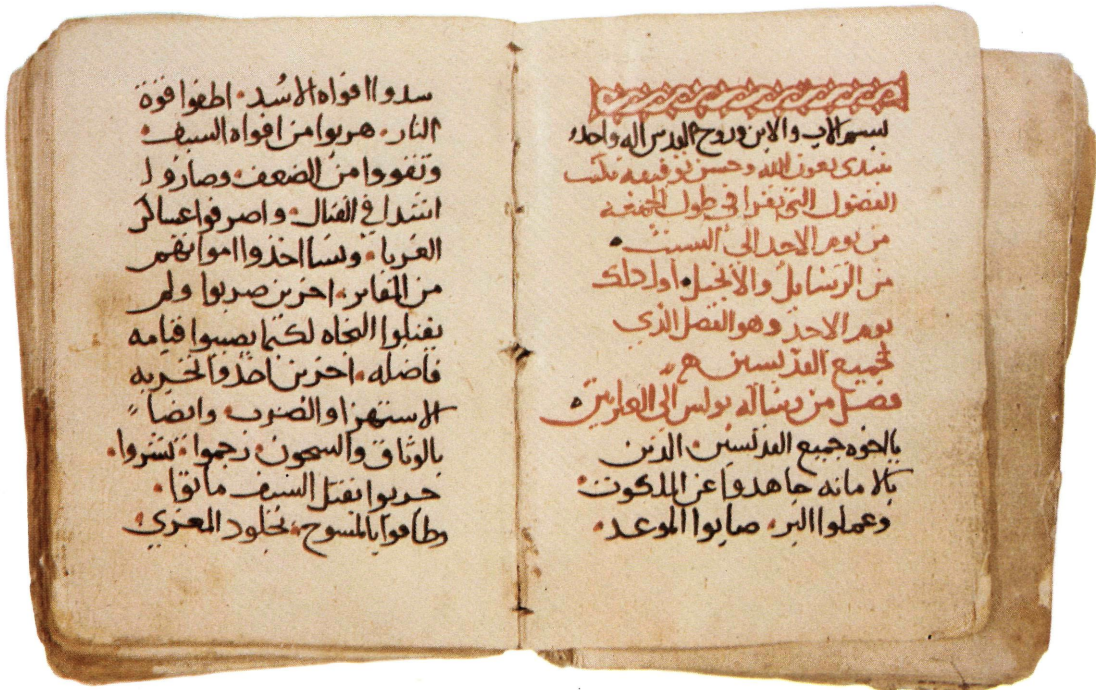 بسم الاب والابن وروح القدس اله واحد
نبتدى بعون الله وحسن توفيقه نكتب
الفصول التي تقرا في طول الجمعة
من يوم الاحد الى السبت
من الرسايل والانجيل اول ذلك
يوم الاحد وهو الفصل الذي
لجميع القديسين
فصل من رسالة بولس الى العبرانيين
يااخوه جميع القديسين الذين
بالامانه جاهدوا عن الملكوت
وعملوا البر۰ صابوا الموعد۰
سدوا افواه الاسد۰ اطفوا قوة
النار۰ هربوا من افواه السيف۰
وتقووا من الضعف۰ وصاروا
اشدا في القتال۰ واصرفوا عساكر
الغربا۰ ونسا اخذوا امواتهم
من المقابر۰ اخرين ضربوا ولم
يقبلوا النجاه لكيما يصيبوا قيامه
فاضله۰ اخرين اخذوا تجربه
الاستهزا والضرب۰ وايضاً
بالوثاق والسجون۰ رجموا۰ نشروا۰
جربوا بقتل السيف ماتوا۰
وطافوا بالمسوح۰ بجلود المعزي